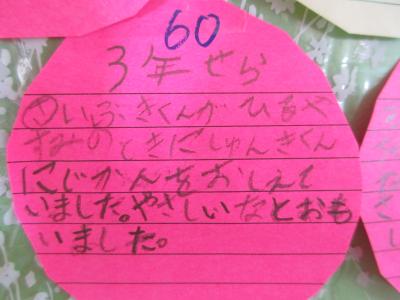 60
3年せら
のいぶきくんがひるや
すみのときにしゅんきくん
にじかんをおしえて
いました。やさしいなとおも
いました。